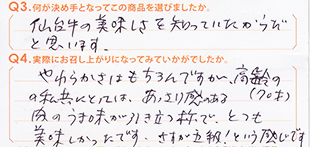 Q3.何が決め手となってこの商品を選びましたか。
仙台牛の美味しさを知っていたからだ
と思います。
Q4.実際にお召し上がりになってみていかがでしたか。
やわらかさはもちろんですが、高齢の
(70才)
の私共にとっては、あっさり感のある
肉のうま味が引き立つ称で、とても
美味しかったです。さすが五級!という感じです